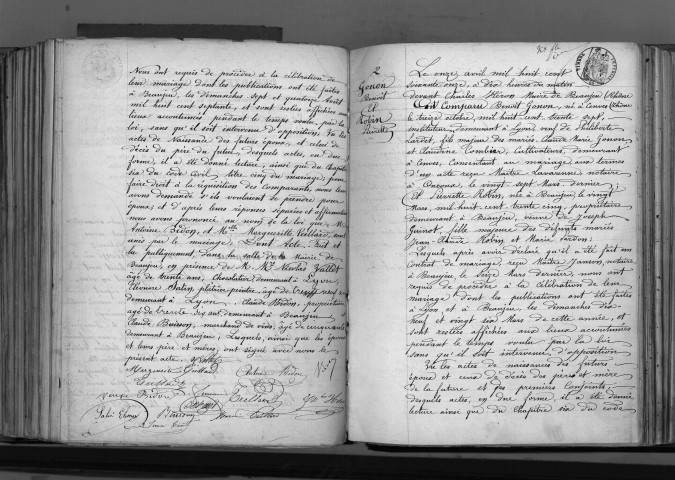 Nous ont requis de procéder à la célébration de
leur mariage dont les publications ont été faites
à Beaujeu, les dimanches sept et quatorze Août
mil huit cent septante, et sont restées affichées aux
lieux accoutumés pendant le temps voulu par la
loi, sans qu'il soit intervenu d'opposition. Vu les
actes de Naissance des futurs époux, et celui de
Décès du père du futur, desquels actes, en due
forme, il a été donné lecture, ainsi que du Chapitre
six du Code Civil titre cinq du mariage; pour
faire droit à la réquisition des Comparants, nous leur
avons demandé s'ils voulaient se prendre pour
époux; et d'après leurs réponses séparées et affirmatives
nous avons prononcé au nom de la loi que M.
Antoine Bidon, et Melle Marguerite Vaillard, sont
unis par le mariage; Dont Acte. Fait et
lu publiquement, dans la salle de la Mairie de
Beaujeu, en présence de M. M. Nicolas
âgé de trente ans, Chocolatier demeurant à Lyon,
Etienne Salin, plâtrier-peintre, âgé de
demeurant à Lyon, Claude Bidon, propriétaire
âgé de trente ans demeurant à Beaujeu et
Claude Buisson, marchand de vins, âgé de cinquante
demeurant à Beaujeu; Lesquels, ainsi que les époux
et leurs père et mères, ont signé avec nous le
présent acte.
Marguerite Vaillard
Antoine Bidon
Bidon
2
Gonon
Benoit
et
Robin
Pierrette
Le onze avril mil huit cent
soixante onze, à dix heures du matin
devant Charles Héron, Maire de Beaujeu (Rhône)
Ont Comparu Benoit Gonon, né à Cenves (Rhône)
le treize octobre, mil huit cent vingt sept,
instituteur, demeurant à Lyon, veuf de Philiberte
Lardet, fils majeur des mariés Claude Marie Gonon
et Claudine Combier, cultivateurs, demeurant
à Cenves, Consentant au mariage aux termes
d'un acte reçu Maître Lavarenne notaire
à Ouroux, le vingt sept Mars, dernier;
Et Pierrette Robin, née à Beaujeu, le vingt
Mars, mil huit cent vingt cinq, propriétaire
demeurant à Beaujeu, veuve de Joseph
Guinot, fille majeure des défunts mariés
Jean-Claude Robin et Marie
Lesquels après avoir déclaré qu'il a été fait un
contrat de mariage, reçu Maître Janson, notaire
à Beaujeu, le Seize Mars dernier, nous ont
requis de procéder à la célébration de leur
mariage dont les publications ont été faites
à Lyon et à Beaujeu, les dimanches dix
neuf et vingt six Mars de cette année, et
sont restées affichées aux lieux accoutumés
pendant le temps voulu par la loi
sans qu'il soit intervenu d'opposition
Vu les actes de naissances des futurs
époux et ceux de Décès des père et mère
de la future et des premiers Conjoints,
desquels actes, en due forme, il a été donné
lecture ainsi que du Chapitre six du code